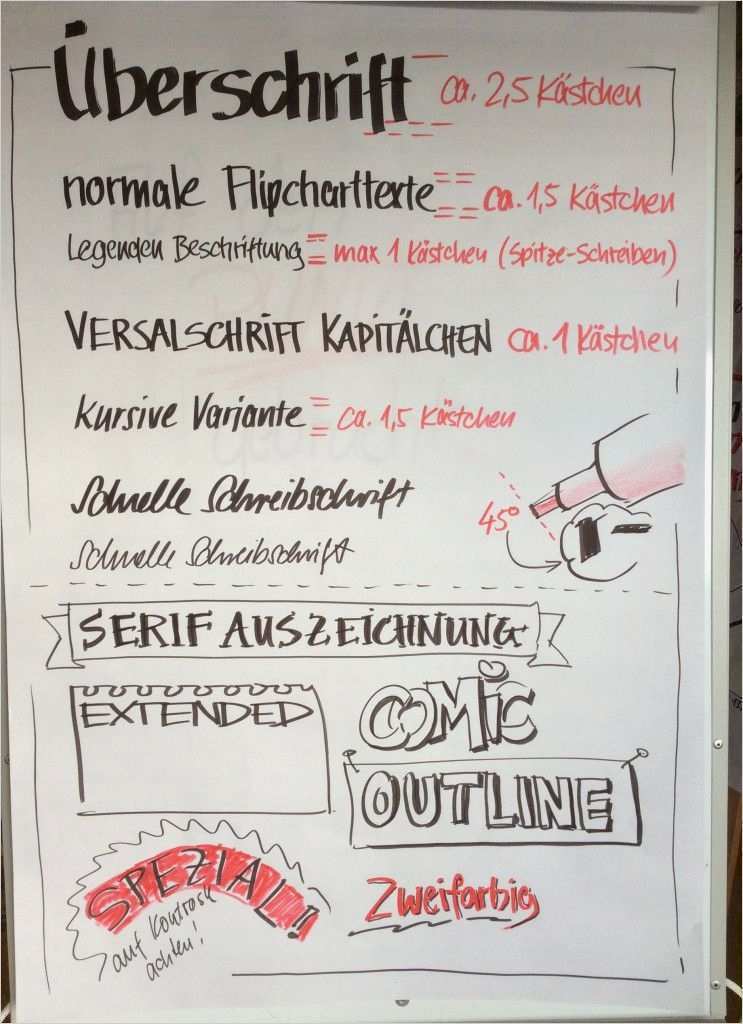 Überschrift ca. 2,5 Kästchen
normale Flipcharttexte ca. 1,5 Kästchen
Legenden Beschriftung max 1 Kästchen (Spitze-Schreiben)
VERSALSCHRIFT KAPITÄLCHEN ca. 1 Kästchen
kursive Variante ca. 1,5 Kästchen
Schnelle Schreibschrift
45°
Schnelle Schreibschrift
SERIF AUSZEICHNUNG
EXTENDED
COMIC
OUTLINE
SPEZIAL!!
auf Kontrast
achten!
Zweifarbig